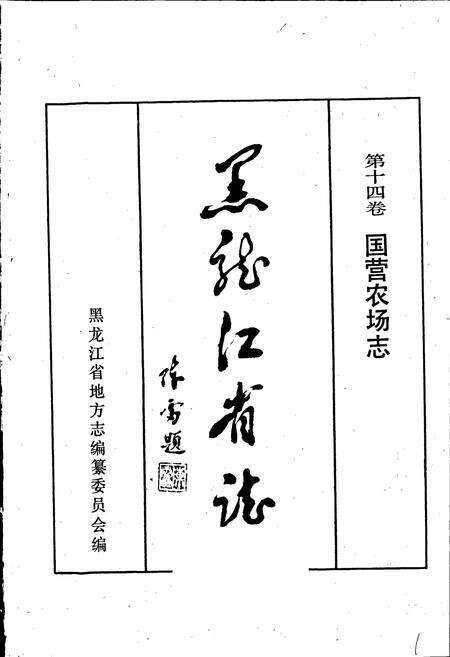 第十四卷 国营农场志
黑龙江省志
陈雷题
黑龙江省地方志编纂委员会编